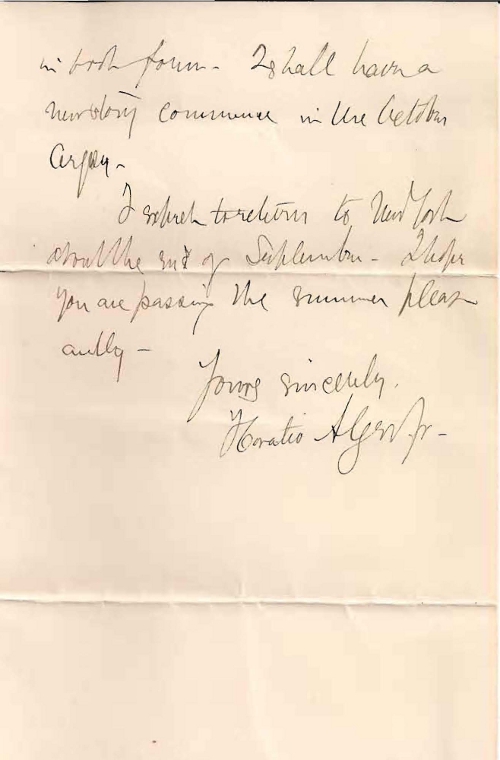 in book form. I shall have a
new story commence in the October
Argosy.
I expect to return to New York
about the end of September. I hope
you are passing the summer pleas
antly –
Yours sincerely,
Horatio Alger Jr.